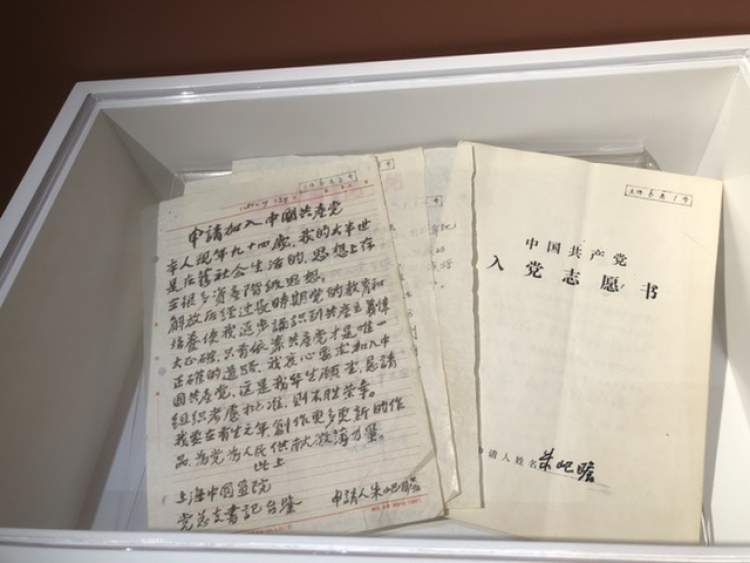 申請加入中國共產党
本人現年九十四歲，我的大半世
是在舊社會生活的，思想上存
在很多資產階級思想。
解放后經过長時期党的教育和
培養使我逐步認識到共產主義偉
大正確，只有依靠共產党才是唯一
正確的道路，我衷心要求加入中
國共產党，这是我畢生願望，懇請
組織考慮批准，則不胜榮幸。
我要在有生之年，創作更多更新的作
品，為党为人民供献微薄力量。
此上
上海中國画院
党总支書記台鑒
申請人朱屺瞻
中国共产党
入党志愿书
申请人姓名朱屺瞻